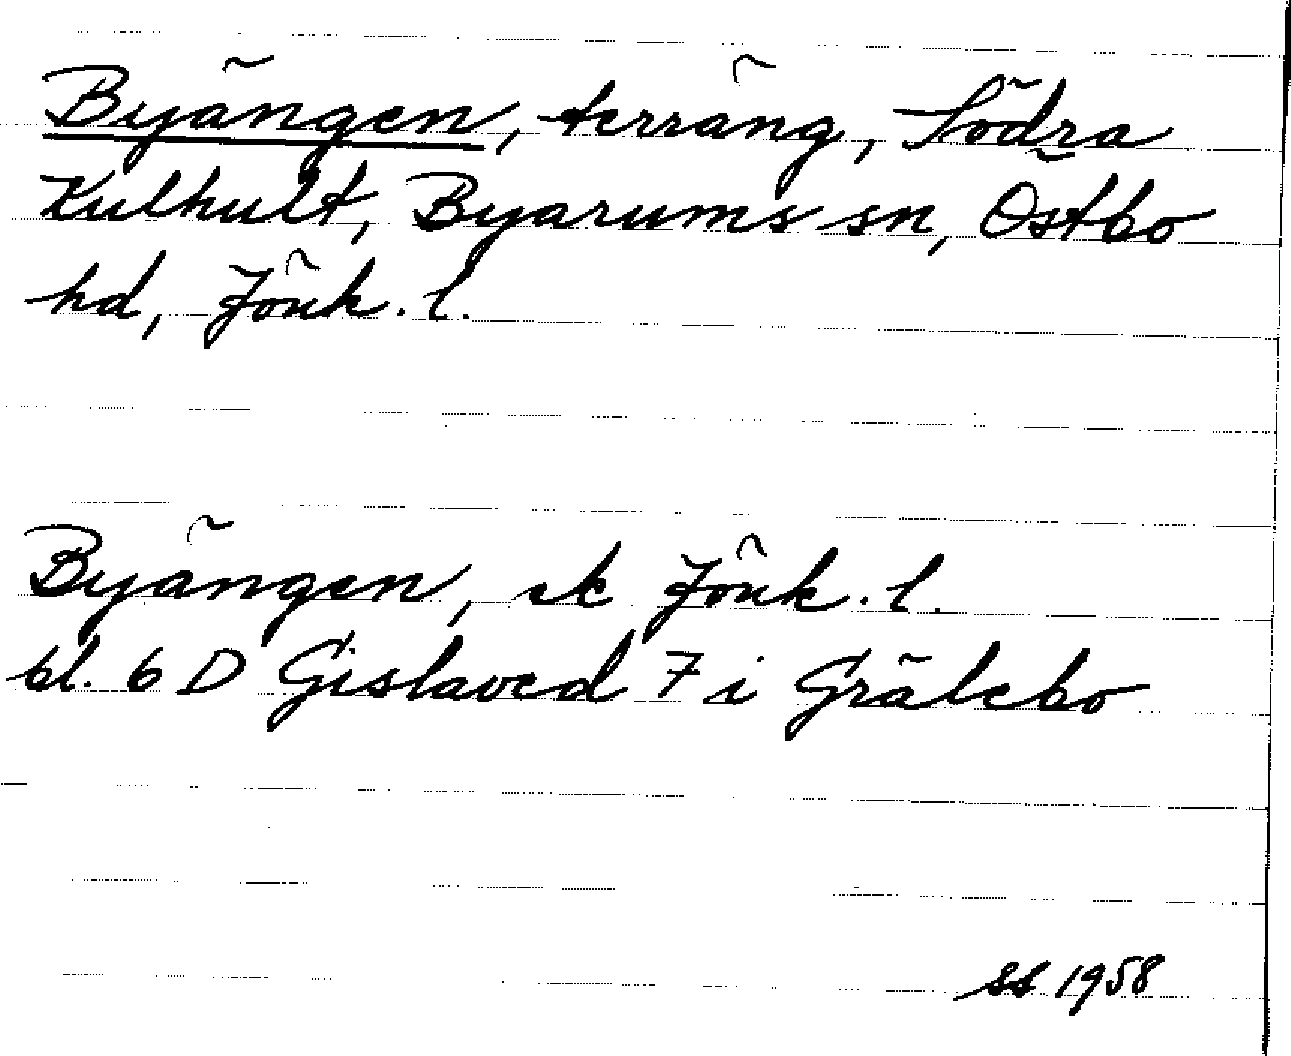 Byängen, terräng, Södra
Kulhult, Byarums sn, Östbo
hd, Jönk. l.
Byängen, ek Jönk. l.
bl. 6 D Gislaved 7 i Grälebo
SS 1958